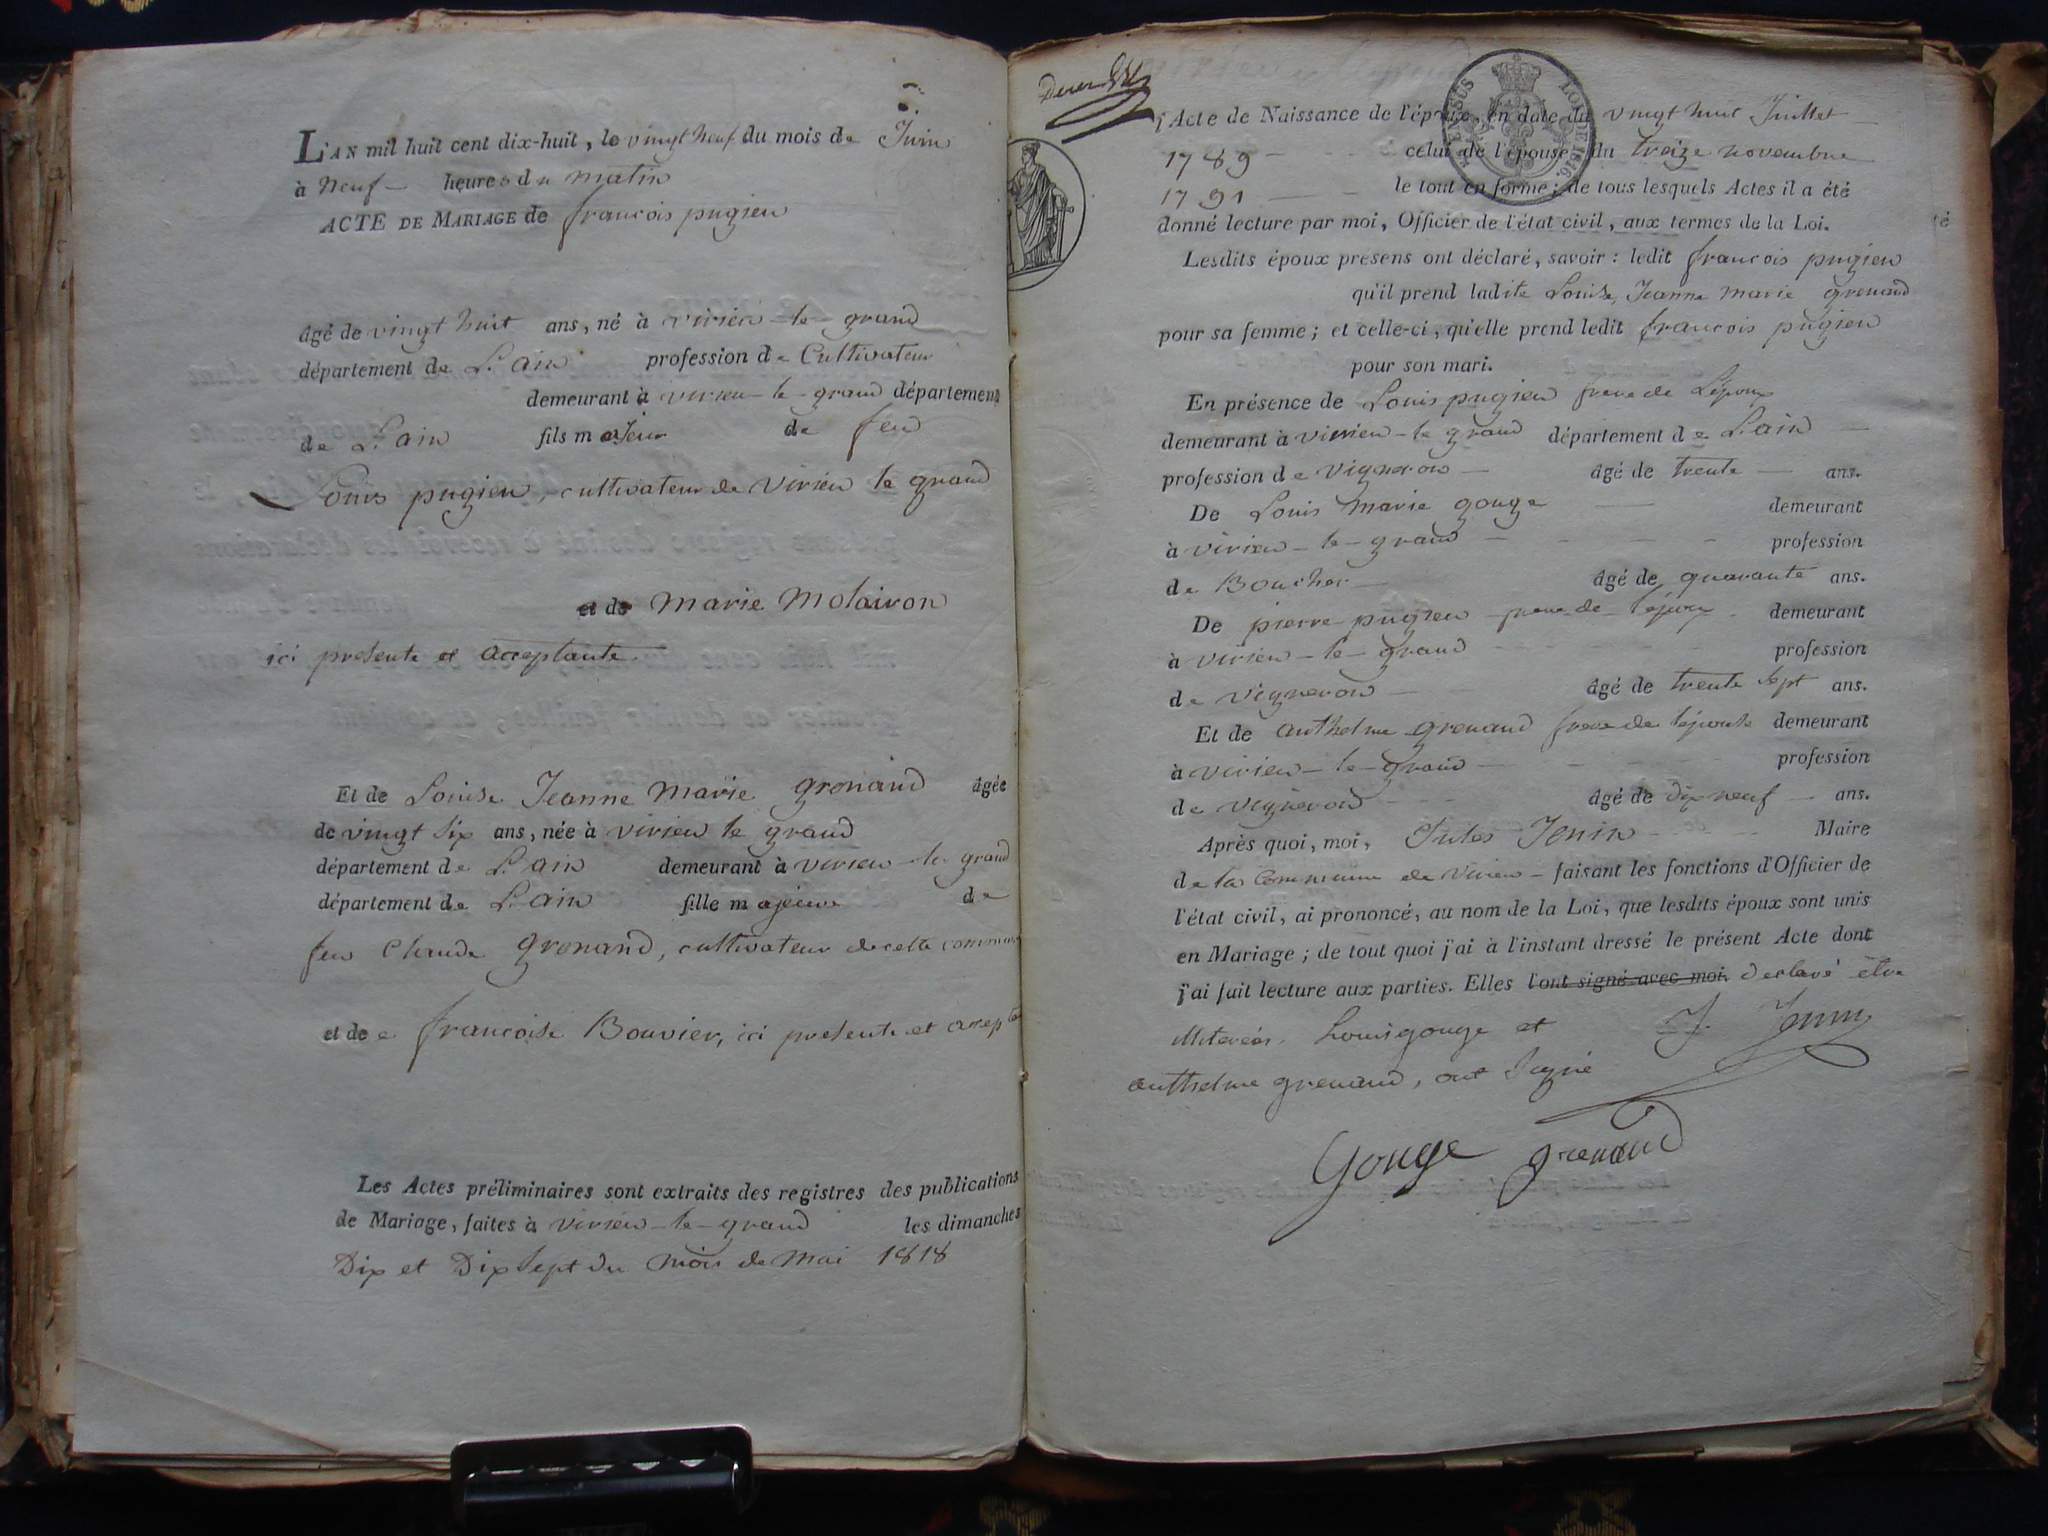 L'AN mil huit cent dix-huit, le vingt neuf du mois de Juin
à neuf heures du matin
ACTE DE MARIAGE de françois pugieu
âgé de vingt huit ans, né à virieu-le-grand
département de L'ain profession de Cultivateur
demeurant à virieu-le-grand département
de L'ain fils majeur de feu
Louis pugieu, cultivateur de virieu le grand
et de Marie Molairon
ici presente et acceptante.
Et de Louise Jeanne Marie grenand âgée
de vingt six ans, née à virieu le grand
département de L'ain demeurant à virieu-le-grand
département de L'ain fille majeure de
feu Claude grenand, cultivateur de cette commune
et de françoise Bouvier, ici presente et accep
Les Actes préliminaires sont extraits des registres des publications
de Mariage, faites à virieu-le-grand les dimanches
Dix et Dix sept du mois de mai 1818
Acte de Naissance de l'époux, en date du vingt huit Juillet
1789 celui de l'épouse, du treize novembre
1791 le tout en forme; de tous lesquels Actes il a été
donné lecture par moi, Officier de l'état civil, aux termes de la Loi.
Lesdits époux presens ont déclaré, savoir: ledit françois pugieu
qu'il prend ladite Louise, Jeanne Marie grenand
pour sa femme; et celle-ci, qu'elle prend ledit françois pugieu
pour son mari.
En présence de Louis pugieu frere de L'époux
demeurant à virieu-le grand département de L'ain
profession de vigneron âgé de trente ans.
De Louis Marie gouge demeurant
à virieu-le-grand profession
de Boucher âgé de quarante ans.
De pierre pugieu frere de l'époux demeurant
à virieu-le-grand profession
de vigneron âgé de trente sept ans.
Et de anthelme grenand frere de l'épouse demeurant
à virieu-le-grand profession
de vigneron âgé de dix neuf ans.
Après quoi, moi, Jules Jenin Maire
de la Commune de virieu faisant les fonctions d'Officier de
l'état civil, ai prononcé, au nom de la Loi, que lesdits époux sont unis
en Mariage; de tout quoi j'ai à l'instant dressé le présent Acte dont
j'ai fait lecture aux parties. Elles l'ont signé avec moi. declaré être
illiterées, Louis gouge et J. Jenin
anthelme grenand, ont signé
Gouge grenand
LOI DE 1816.